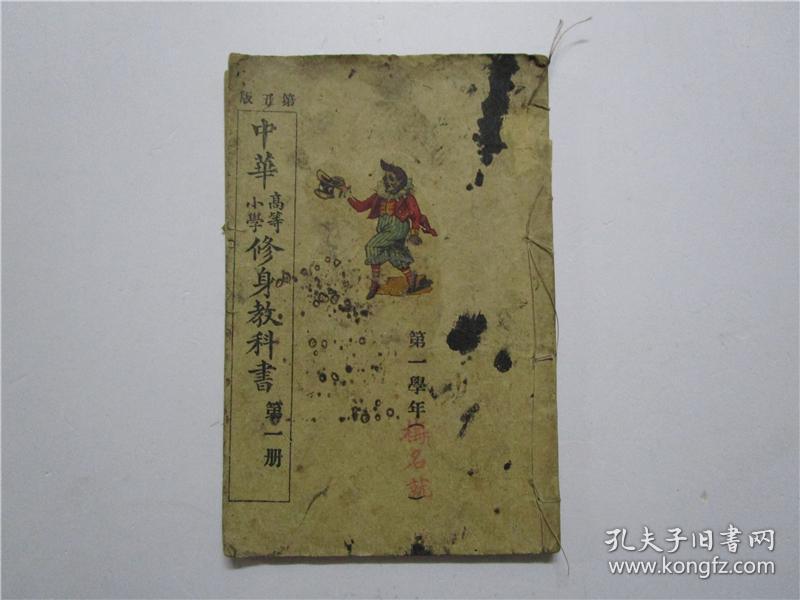 第五版
中華高等小學修身教科書 第一册
第一學年(
梅名
)
孔夫子旧书网
www.kongfz.com